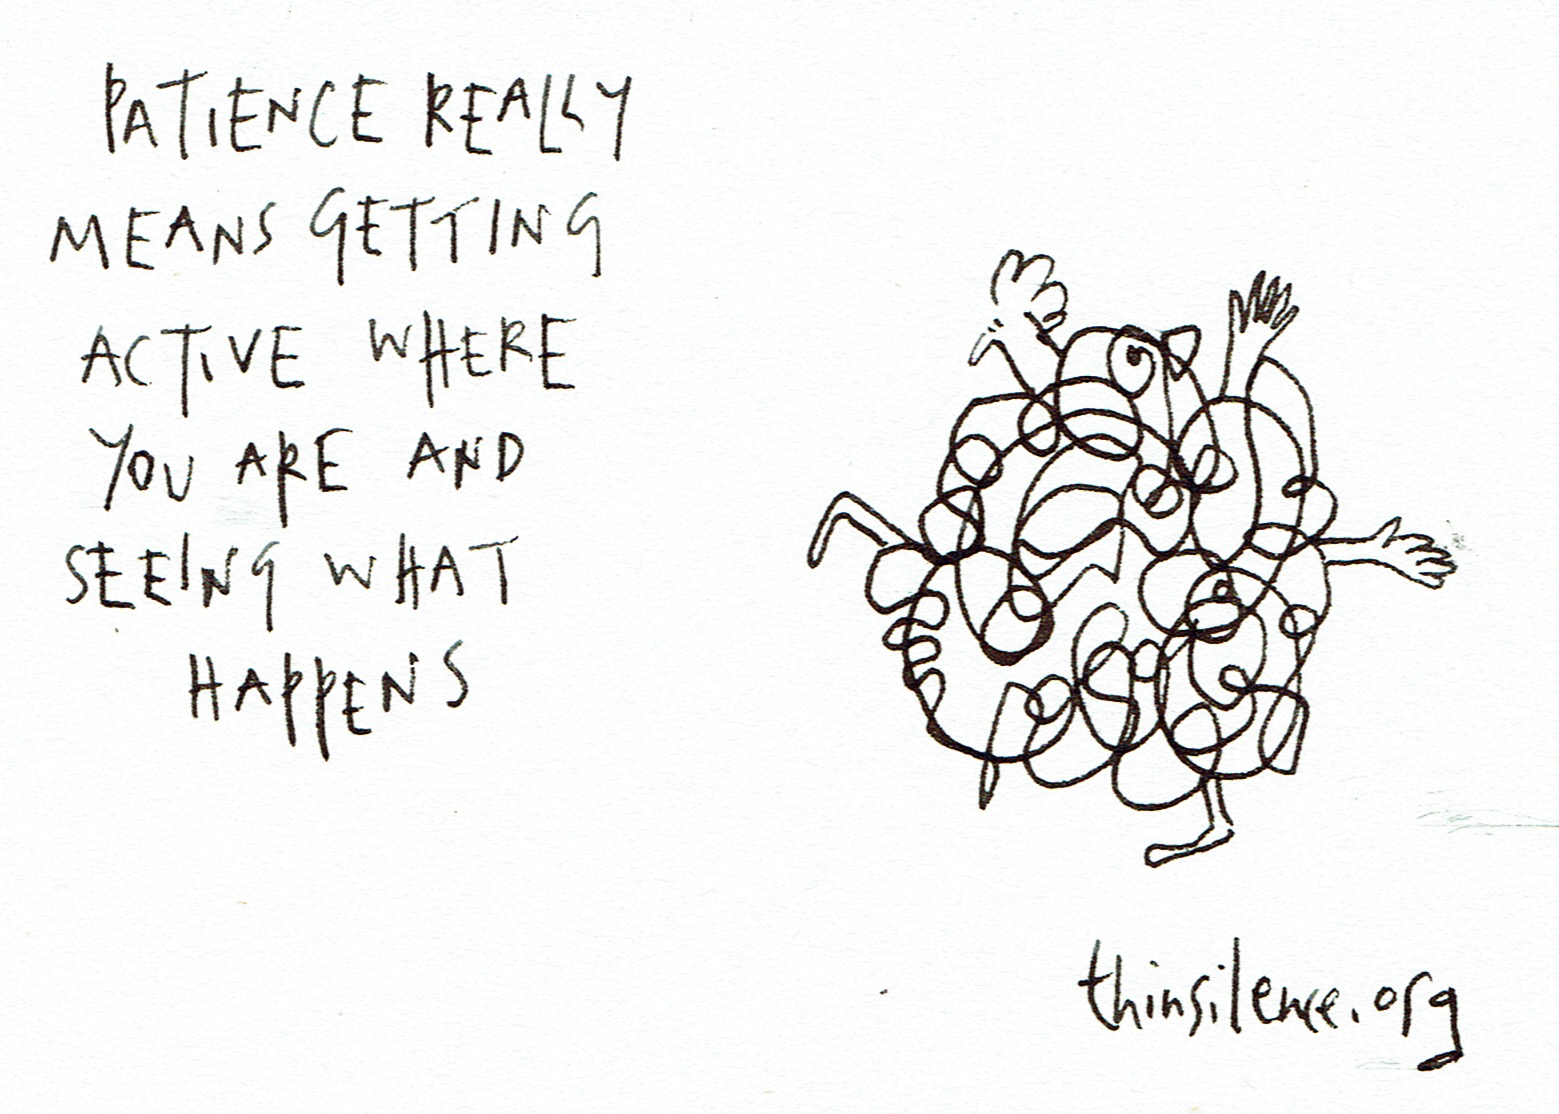 PATIENCE REALLY
MEANS GETTING
ACTIVE WHERE
YOU ARE AND
SEEING WHAT
HAPPENS
thinsilence.org